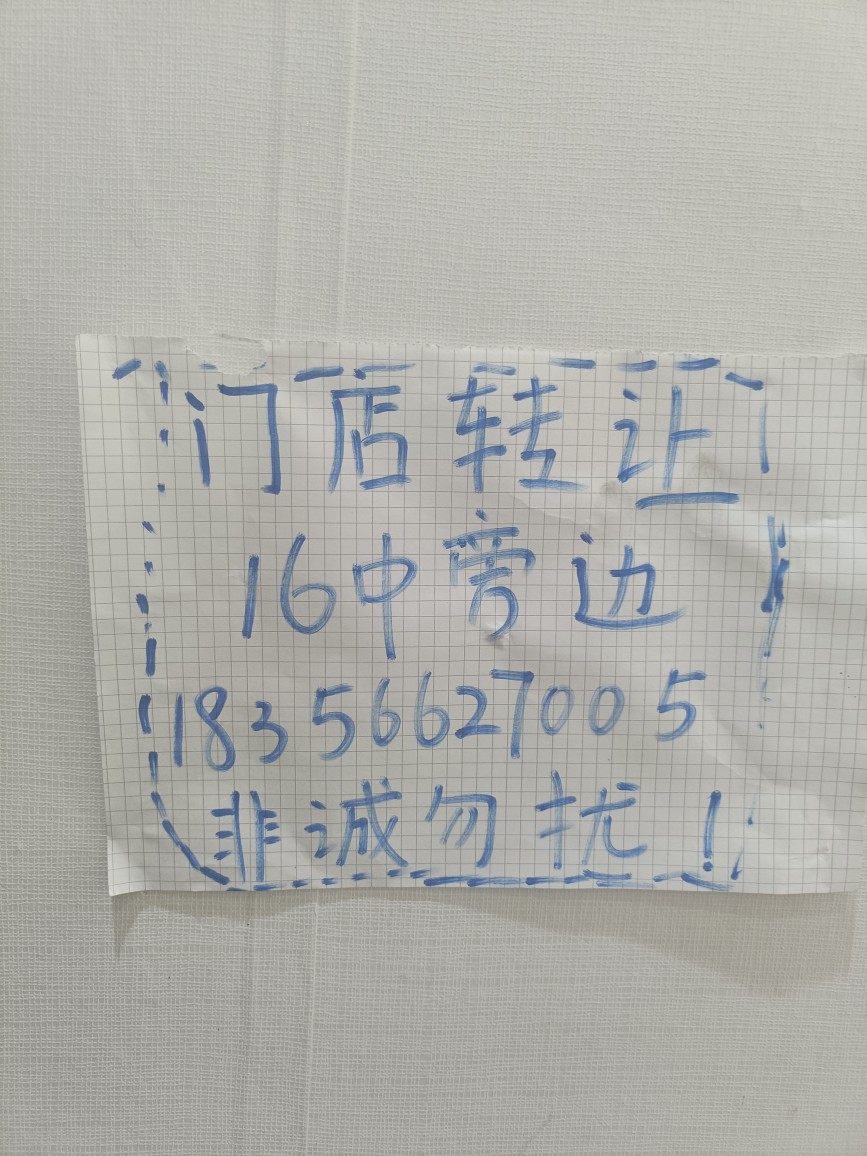 门店转让
16中旁边
18356627005
非诚勿扰！